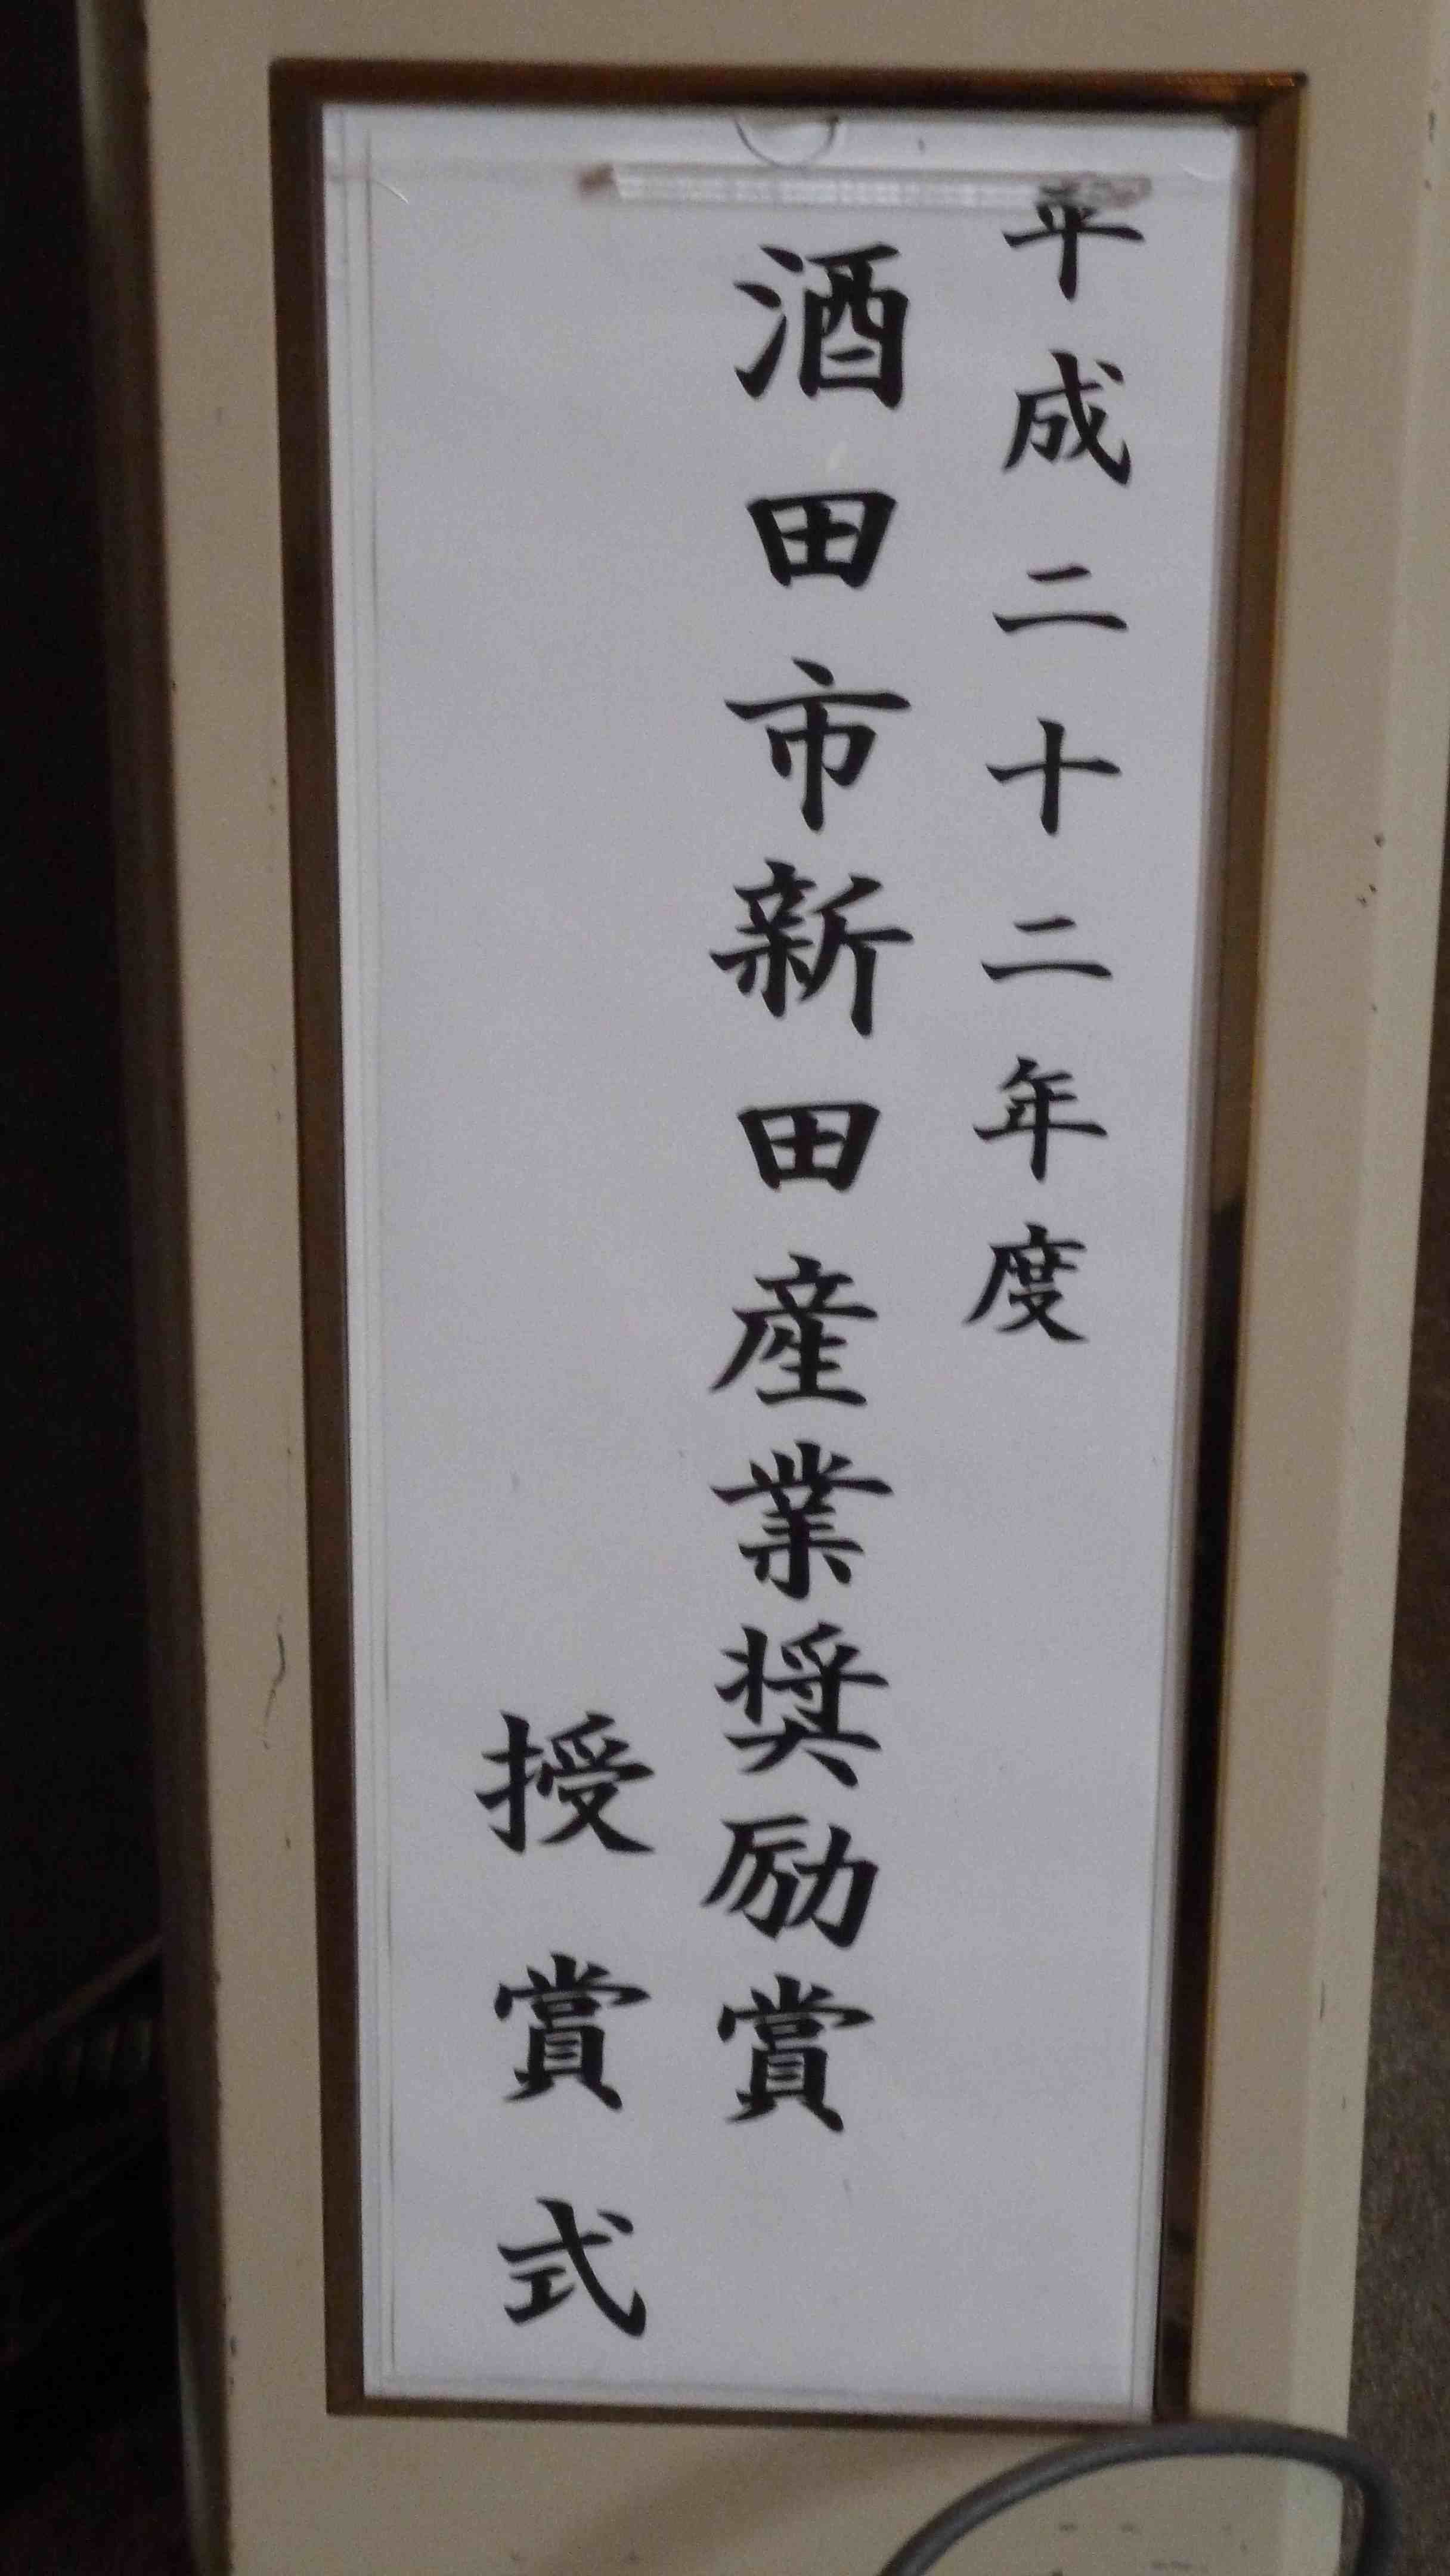 平成二十二年度
酒田市新田産業奨励賞
授賞式